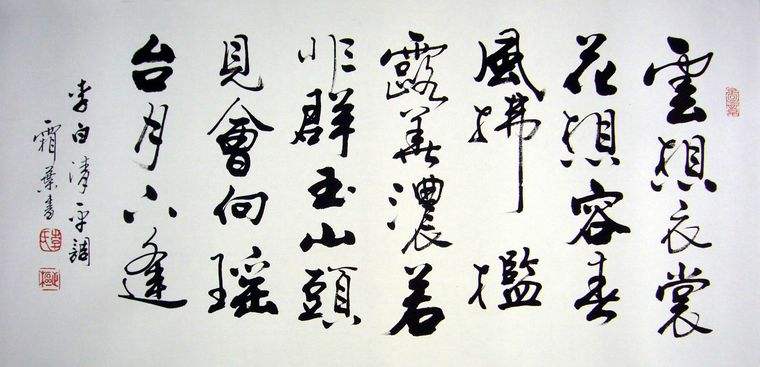 雲想衣裳
花想容春
風拂檻
露華濃若
非群玉山頭
見會向瑶
台月下逢
李白清平調
霜葉書